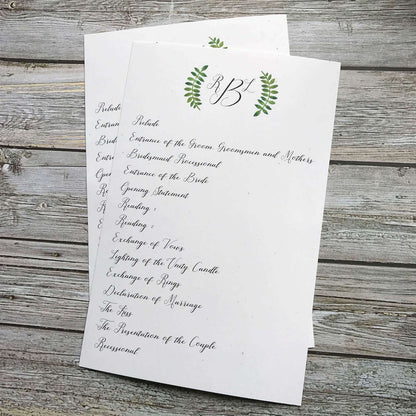 R B L
Prelude
Entrance of the Groom, Groomsmen and Mothers
Bridesmaid Processional
Entrance of the Bride
Opening Statement
Reading 1
Reading 2
Exchange of Vows
Lighting of the Unity Candle
Exchange of Rings
Declaration of Marriage
The Kiss
The Presentation of the Couple
Recessional
Prelude
Entran
Brides
Entra
Openi
Re
R